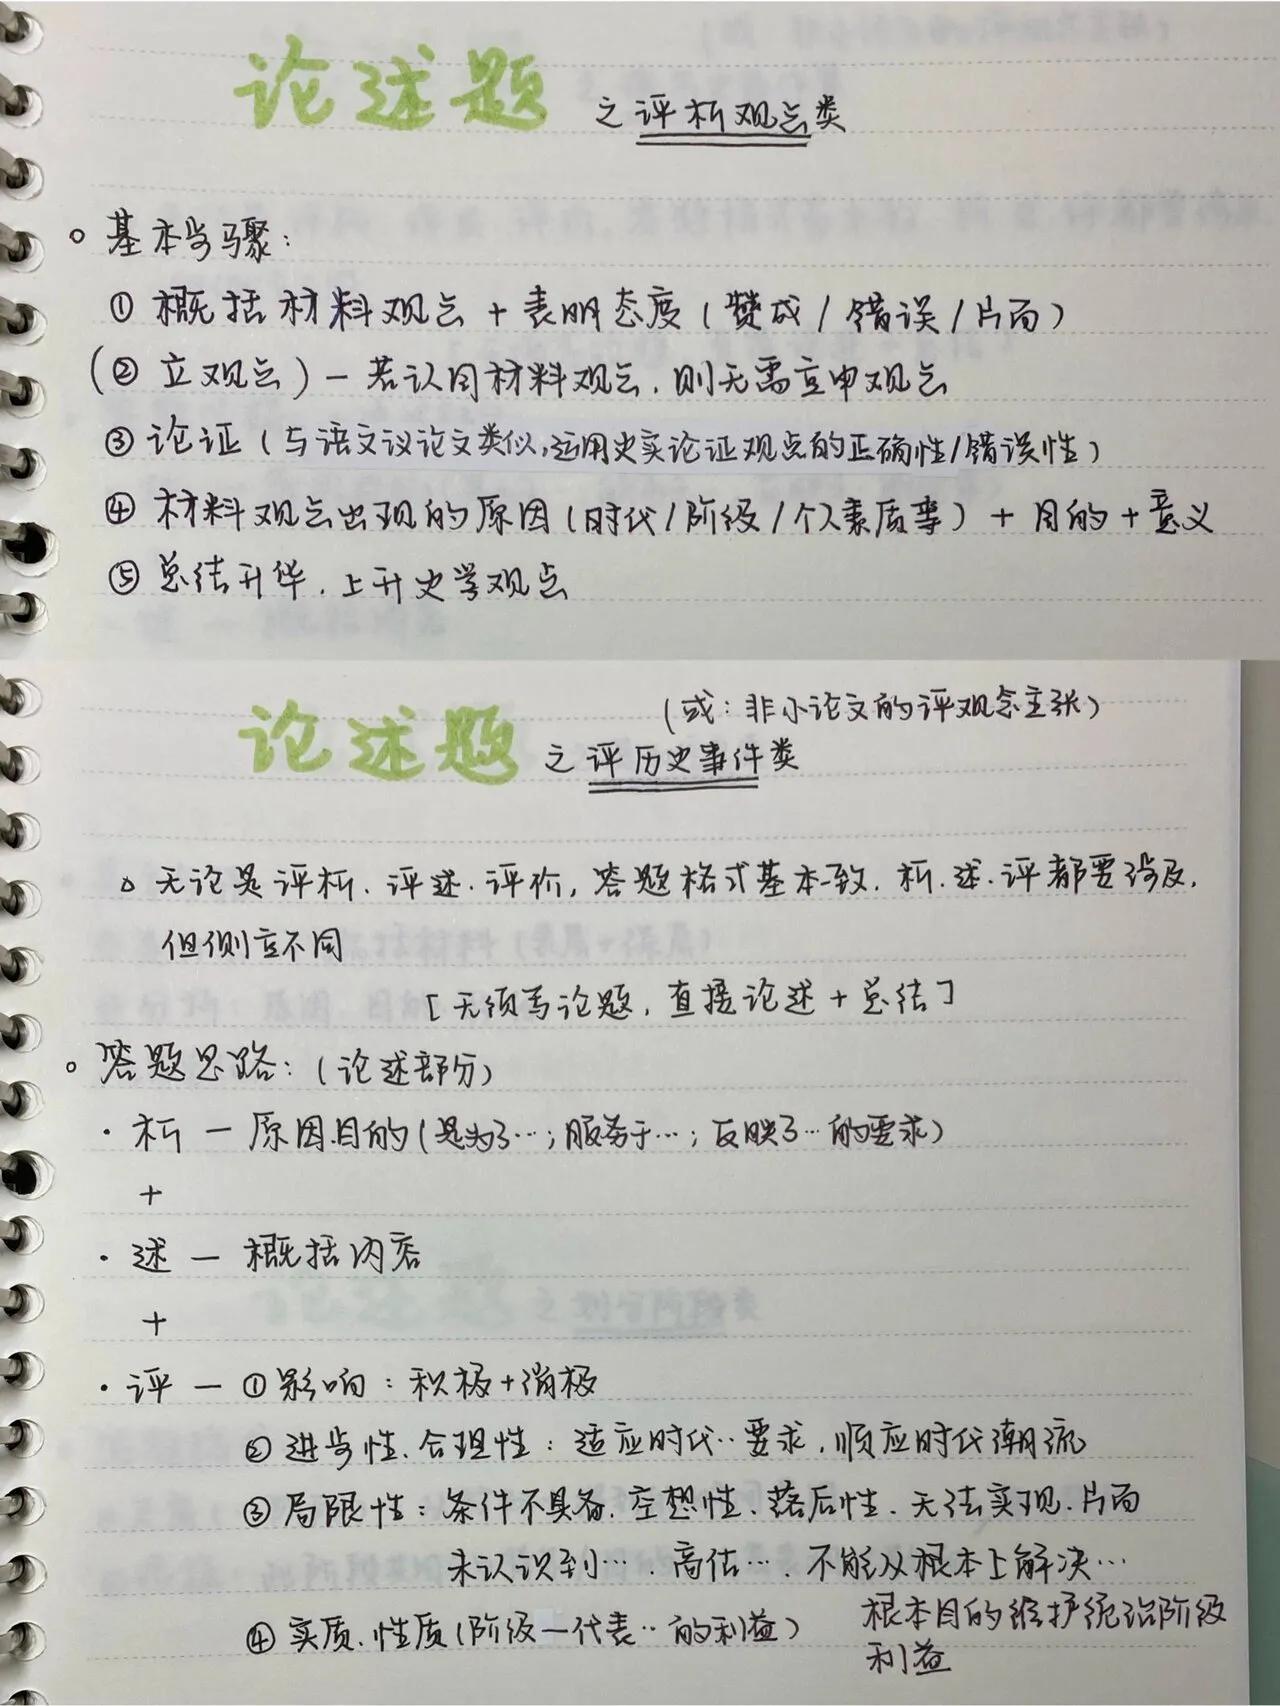 论述题 之评析观点类
。基本步骤：
① 概括材料观点 + 表明态度（赞成/错误/片面）
（② 立观点）— 若认同材料观点，则无需立申观点
③ 论证（与语文议论文类似，运用史实论证观点的正确性/错误性）
④ 材料观点出现的原因（时代/阶级/个人素质等）+ 目的 + 意义
⑤ 总结升华，上升史学观点
（或：非小论文的评观念主张）
论述题 之评历史事件类
。无论是评析、评述、评价，答题格式基本一致，析、述、评都要涉及，
但侧立不同
[无须写论题，直接论述 + 总结]
。答题思路：（论述部分）
· 析 — 原因.目的（是为了…；服务于…；反映了…的要求）
+
· 述 — 概括内容
+
· 评 — ① 影响：积极+消极
② 进步性、合理性：适应时代…要求，顺应时代潮流
③ 局限性：条件不具备、空想性、落后性、无法实现、片面
未认识到…、高估…、不能从根本上解决…
④ 实质、性质（阶级—代表…的利益） 根本目的维护统治阶级
利益